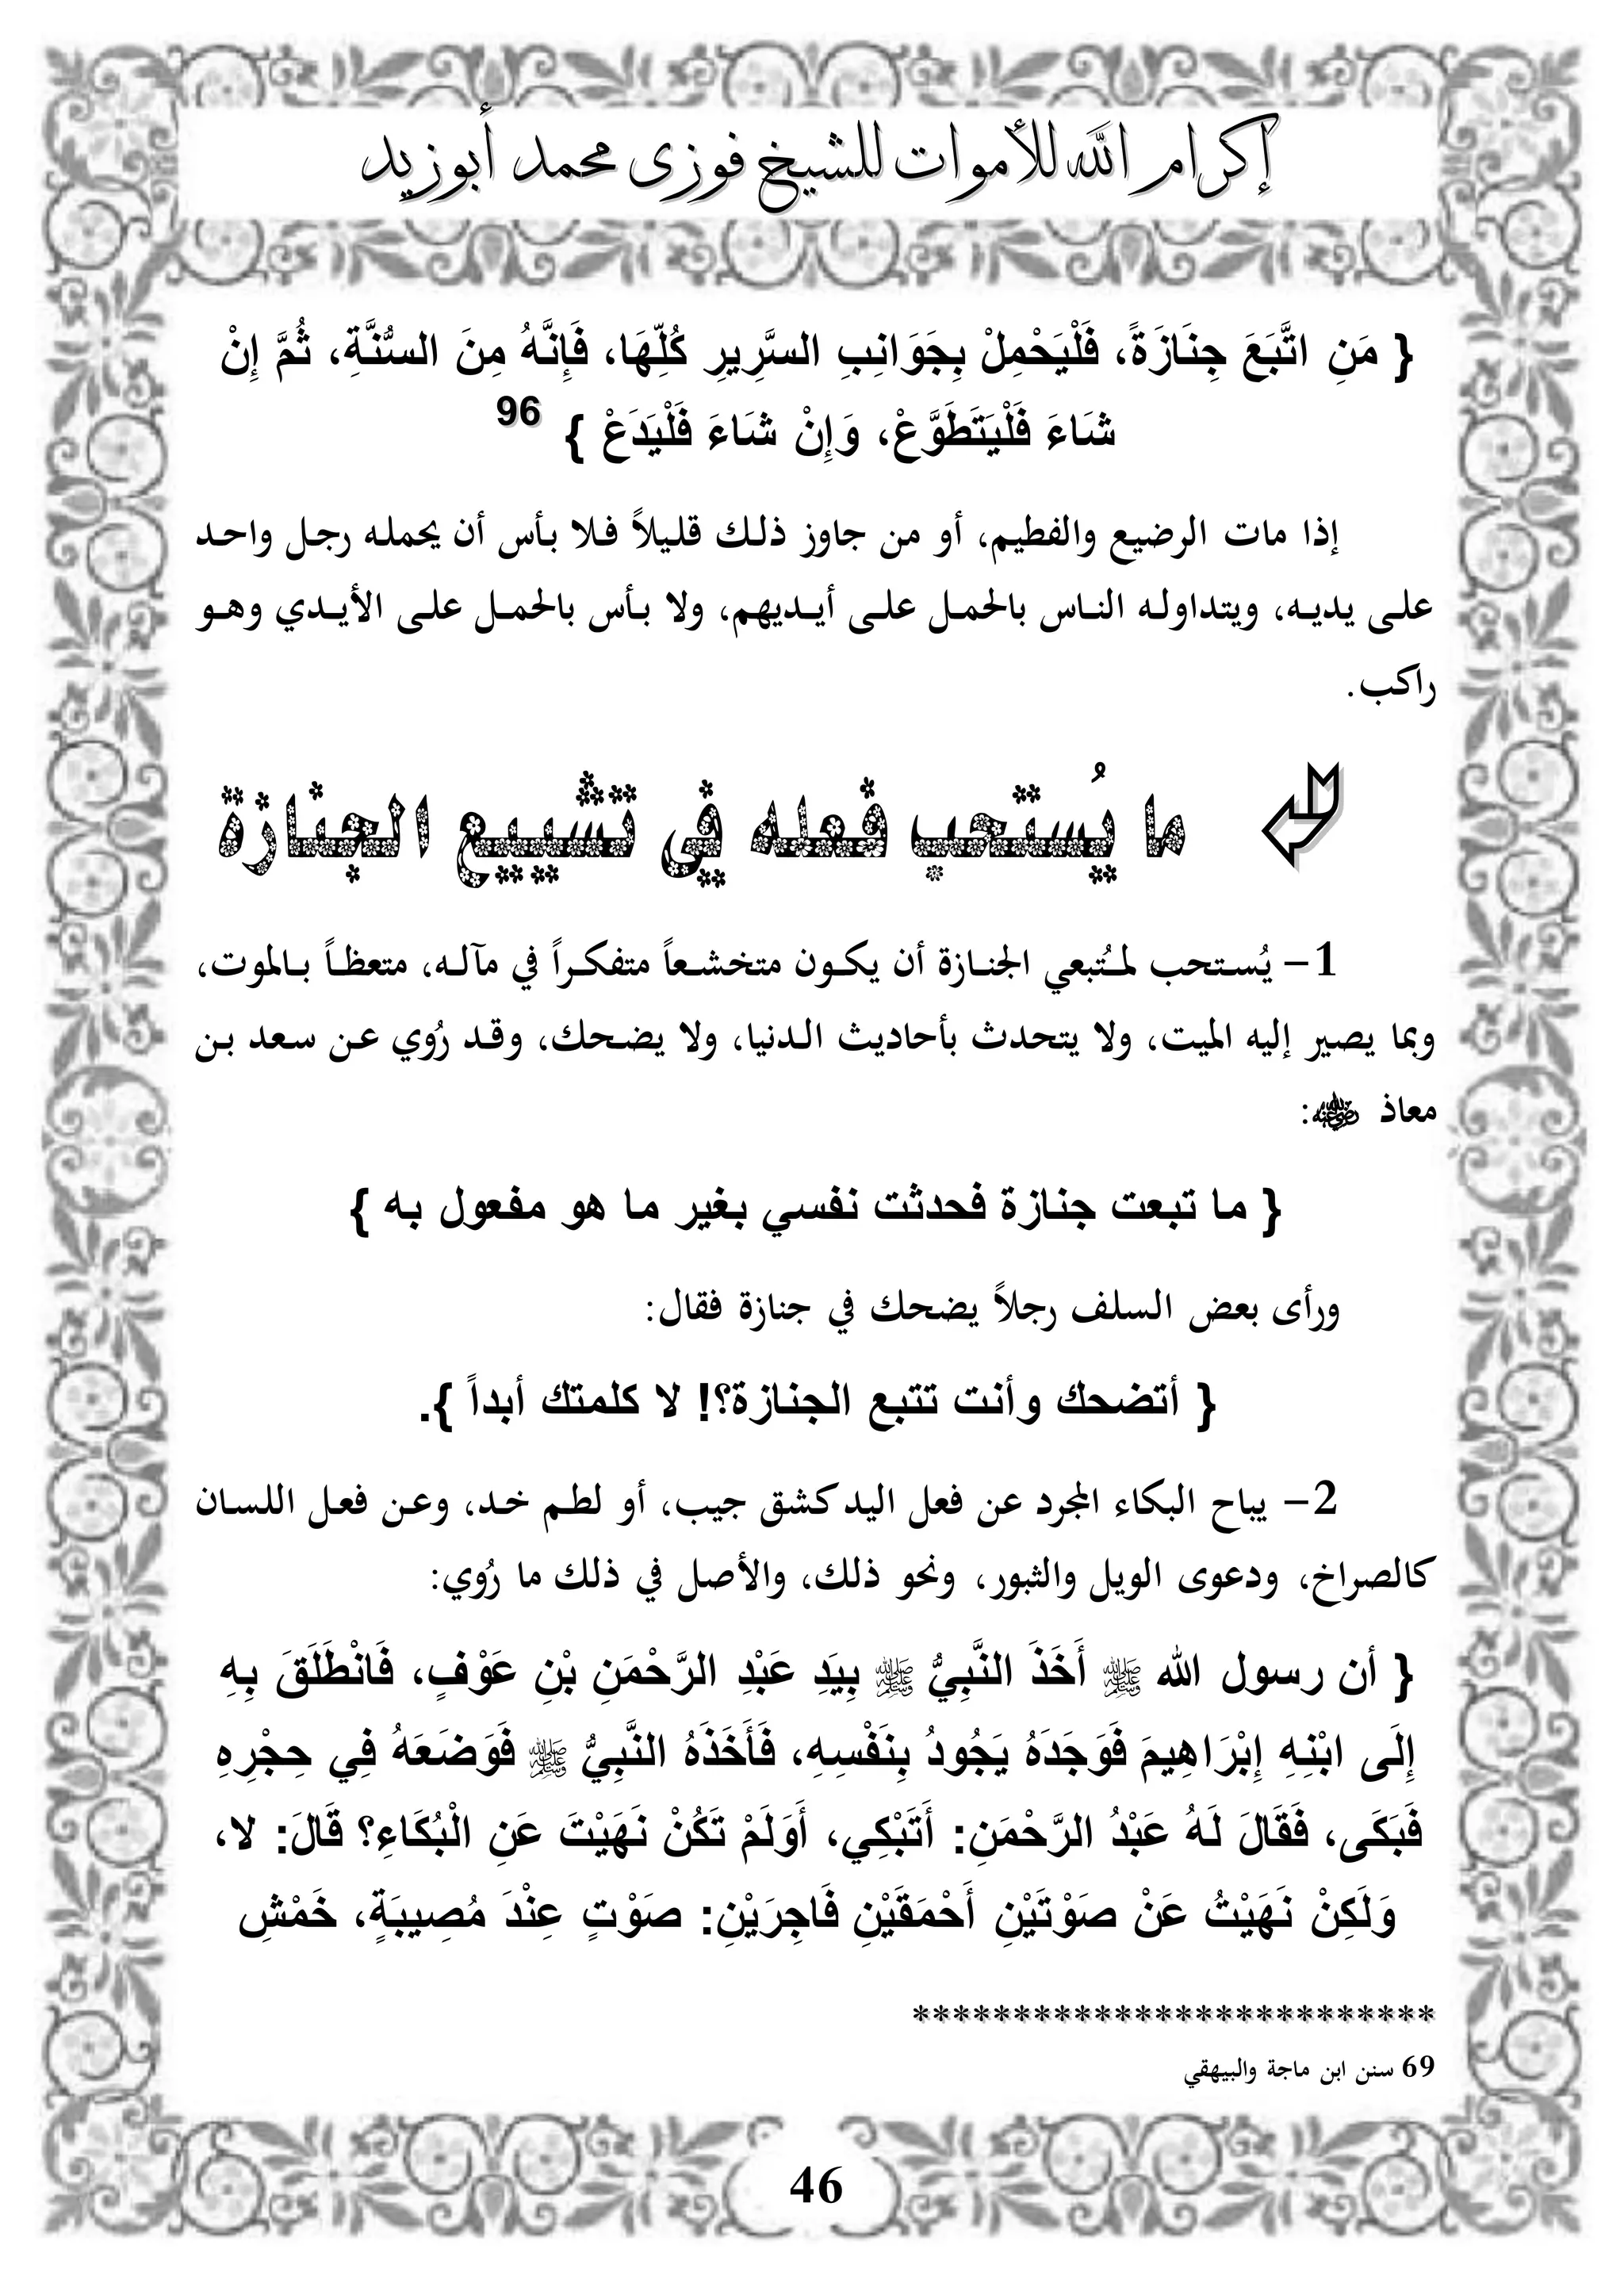 إكرام الله للأموات للشيخ فوزى محمد أبوزيد
{ مَنِ اتَّبَعَ جِنَازَةً، فَلْيَحْمِلْ بِجَوَانِبِ السَّرِيرِ كُلِّهَا، فَإِنَّهُ مِنَ السُّنَّةِ، ثُمَّ إِنْ
شَاءَ فَلْيَتَطَوَّعْ، وَإِنْ شَاءَ فَلْيَدَعْ } 96
إذا مات الرضيع والفطيم، أو من جاوز ذلك قليلاً فلا بأس أن يحمله رجل واحد
على يديه، ويتداوله الناس بالحمل على أيديهم، ولا بأس بالحمل على الأيدي وهو
راكب.
ما يُستحب فعله فى تشييع الجنازة
1- يُستحب لمُتبعي الجنازة أن يكون متخشعاً متفكراً في مآله، متعظاً بالموت،
وبما يصير إليه الميت، ولا يتحدث بأحاديث الدنيا، ولا يضحك، وقد رُوي عن سعد بن
معاذ رضي الله عنه:
{ ما تبعت جنازة فحدثت نفسي بغير ما هو مفعول به }
ورأى بعض السلف رجلاً يضحك في جنازة فقال:
{ أتضحك وأنت تتبع الجنازة؟! لا كلمتك أبداً }.
2- يباح البكاء المجرد عن فعل اليد كشق جيب، أو لطم خد، وعن فعل اللسان
كالصراخ، ودعوى الويل والثبور، ونحو ذلك، والأصل في ذلك ما رُوي:
{ أن رسول الله ﷺ أَخَذَ النَّبِيُّ ﷺ بِيَدِ عَبْدِ الرَّحْمَنِ بْنِ عَوْفٍ، فَانْطَلَقَ بِهِ
إِلَى ابْنِهِ إِبْرَاهِيمَ فَوَجَدَهُ يَجُودُ بِنَفْسِهِ، فَأَخَذَهُ النَّبِيُّ ﷺ فَوَضَعَهُ فِي حِجْرِهِ
فَبَكَى، فَقَالَ لَهُ عَبْدُ الرَّحْمَنِ: أَتَبْكِي، أَوَلَمْ تَكُنْ نَهَيْتَ عَنِ الْبُكَاءِ؟ قَالَ: لا،
وَلَكِنْ نَهَيْتُ عَنْ صَوْتَيْنِ أَحْمَقَيْنِ فَاجِرَيْنِ: صَوْتٍ عِنْدَ مُصِيبَةٍ، خَمْشِ
**************************
69 سنن ابن ماجة والبيهقي
46